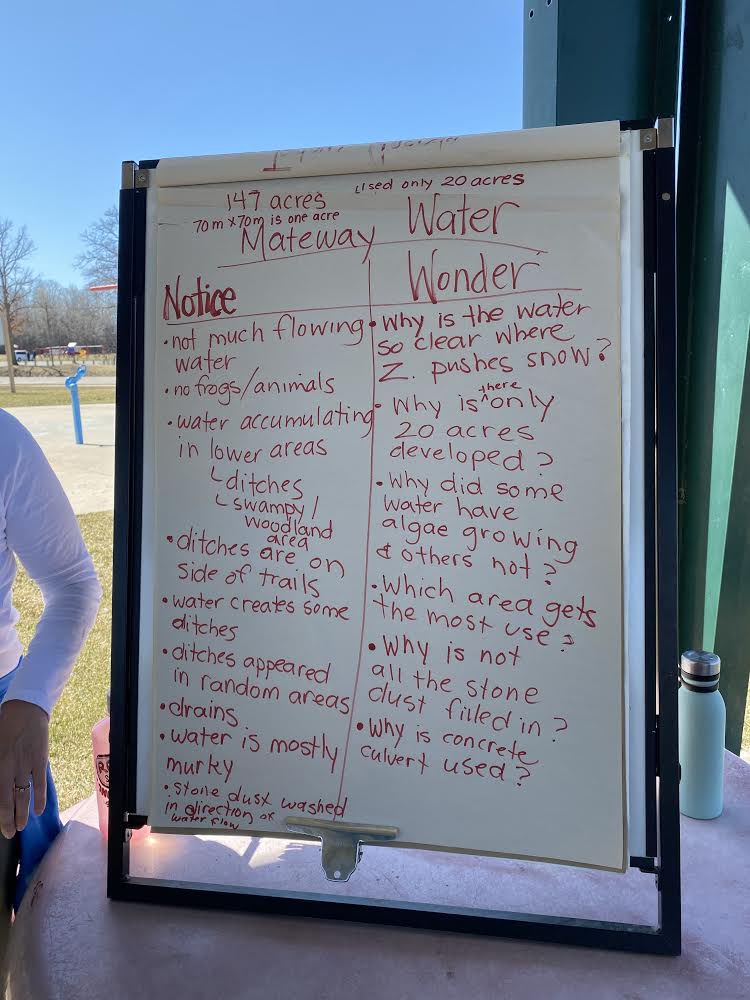 147 acres
used only 20 acres
70m x 70m is one acre
Mateway Water
Notice
• not much flowing
water
• no frogs/animals
• water accumulating
in lower areas
ditches
swampy/
woodland
area
• ditches are on
side of trails
• water creates some
ditches
• ditches appeared
in random areas
• drains
• water is mostly
murky
• stone dust washed
in direction of
water flow
Wonder
• Why is the water
so clear where
Z. pushes snow?
• Why is there only
20 acres
developed?
• Why did some
water have
algae growing
& others not?
• Which area gets
the most use?
• Why is not
all the stone
dust filled in?
• Why is concrete
culvert used?